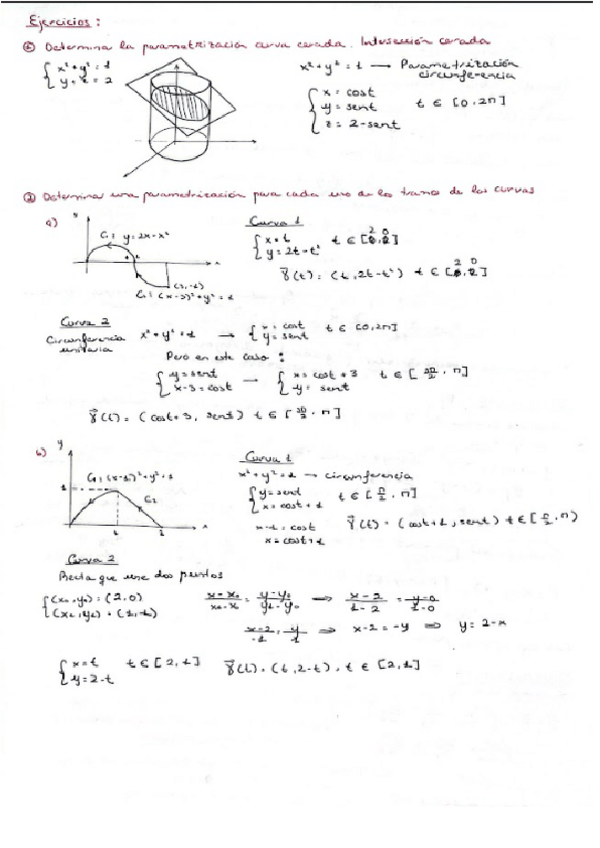 Ejercicios:
① Determina la parametrización curva cerrada. Intersección cerrada
{ x² + y² = 1
y + z = 2
x² + y² = 1 → Parametrización circunferencia
{ x = cost
y = sent t ∈ [0, 2π]
z = 2 - sent
② Determina una parametrización para cada uno de los tramos de las curvas
a)
C₁: y = 2x - x²
(3, -1)
C₂: (x-3)² + y² = 1
Curva 1
{ x = t t ∈ [2, 0]
y = 2t - t²
γ(t) = (t, 2t - t²) t ∈ [2, 0]
Curva 2
Circunferencia unitaria x² + y² = 1 → { x = cost t ∈ [0, 2π]
y = sent
Pero en este caso:
{ y = sent → { x = cost + 3 t ∈ [3π/2, π]
x - 3 = cost y = sent
γ(t) = (cost + 3, sent) t ∈ [3π/2, π]
b)
y
C₁: (x-1)² + y² = 1
C₂
1
x
Curva 1
x² + y² = 1 → circunferencia
{ y = sent t ∈ [π/2, π]
x = cost + 1
x - 1 = cost γ(t) = (cost + 1, sent) t ∈ [π/2, π)
x = cost + 1
Curva 2
Recta que une dos puntos
{ (x₀, y₀) = (2, 0)
(x₁, y₁) = (1, 1)
⇒ x-2/1-2 = y-0/1-0
x-2/-1 = y/1 ⇒ x - 2 = -y ⇒ y = 2 - x
{ x = t t ∈ [2, 1] γ(t) = (t, 2 - t), t ∈ [2, 1]
y = 2 - t